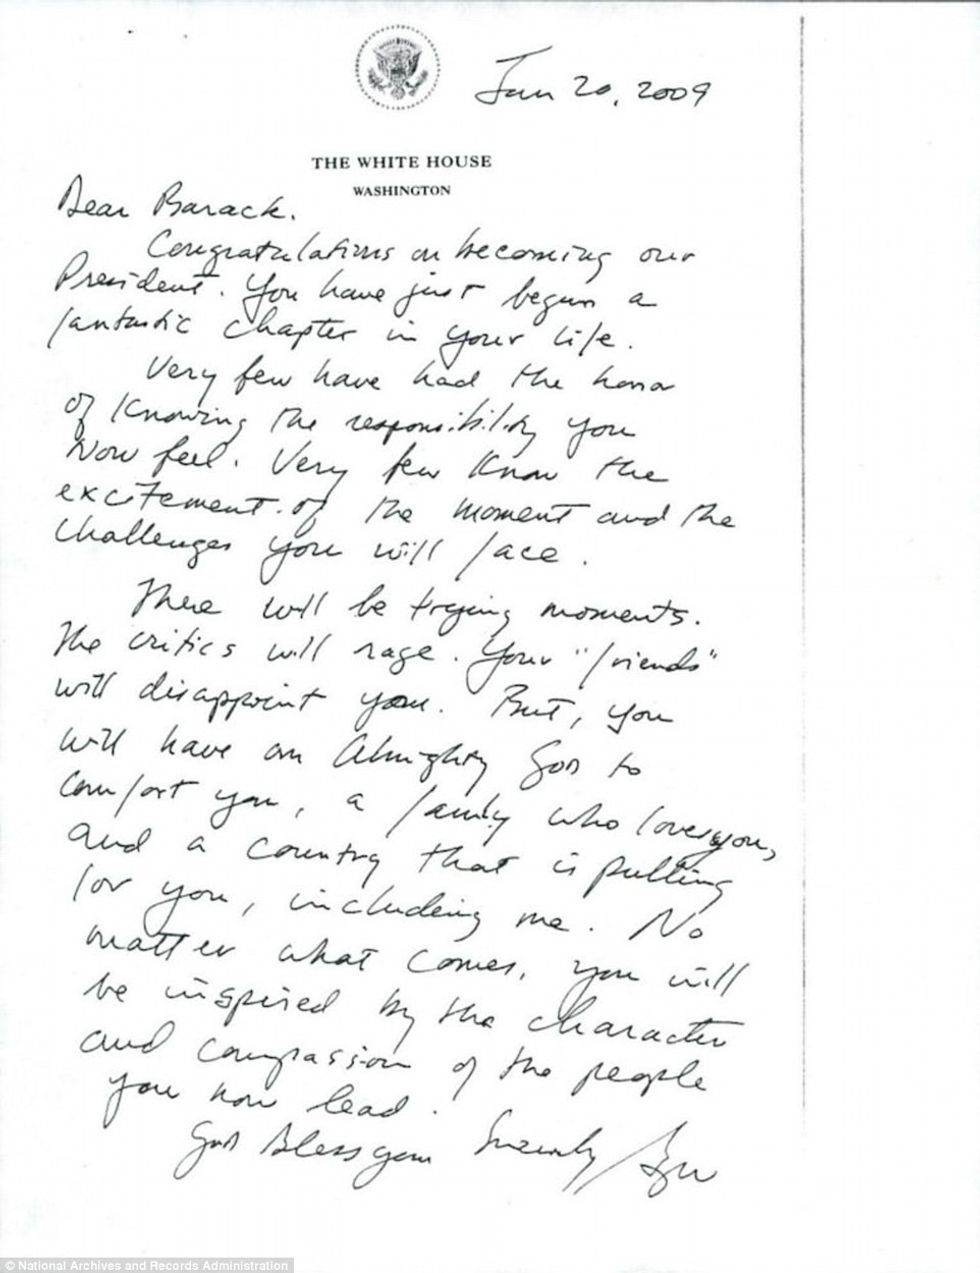 Jan 20, 2009
THE WHITE HOUSE
WASHINGTON
Dear Barack.
Congratulations on becoming our
President. You have just begun a
fantastic chapter in your life.
Very few have had the honor
of knowing the responsibility you
now feel. Very few know the
excitement of the moment and the
challenges you will face.
There will be trying moments.
The critics will rage. Your "friends"
will disappoint you. But, you
will have an Almighty God to
comfort you, a family who loves you,
and a country that is pulling
for you, including me. No
matter what comes, you will
be inspired by the character
and compassion of the people
you now lead.
God Bless you Sincerely,
© National Archives and Records Administration